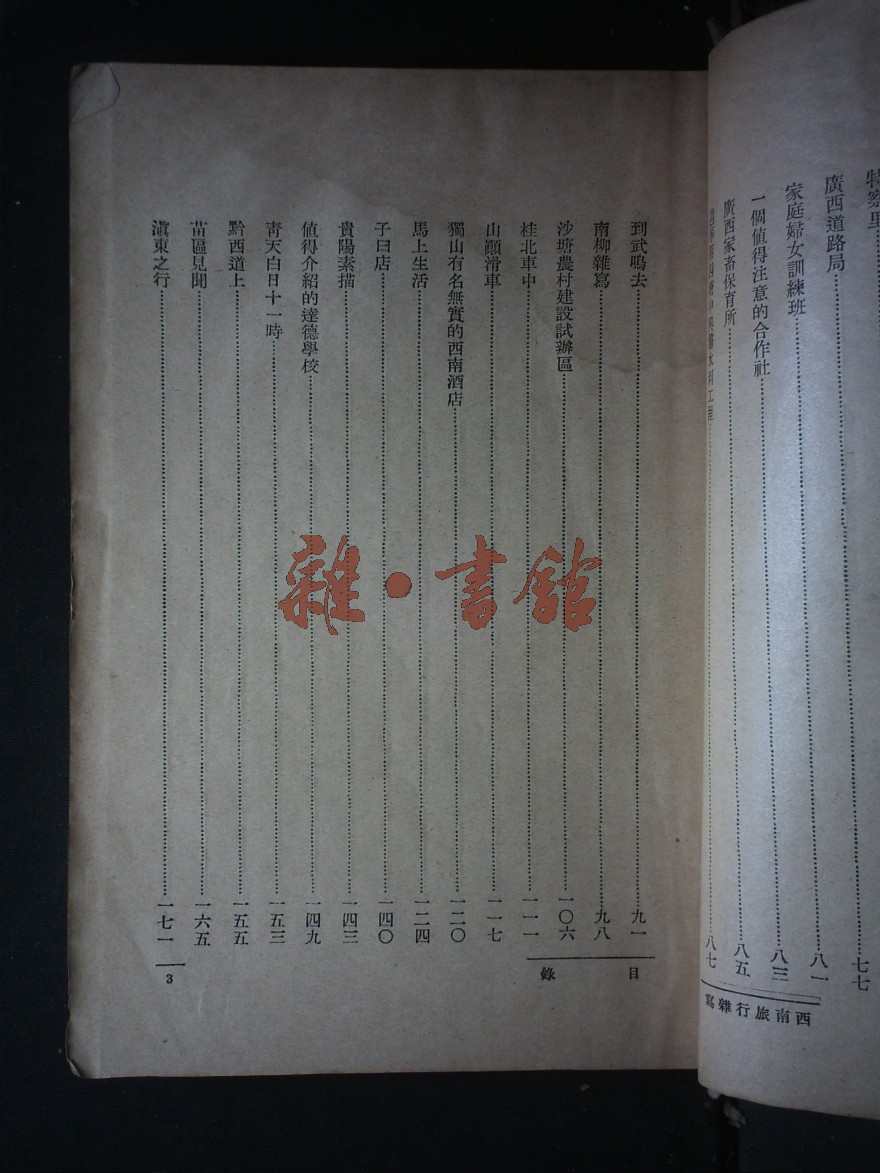 廣西道路局……七七
家庭婦女訓練班……八一
一個值得注意的合作社……八三
廣西家畜保育所……八五
水利工程……八七
西南旅行雜寫
到武鳴去……九一
南柳雜寫……九八
沙塘農村建設試辦區……一〇六
桂北車中……一一一
山巔滑車……一一七
獨山有名無實的西南酒店……一二〇
馬上生活……一二四
子曰店……一四〇
貴陽素描……一四三
值得介紹的達德學校……一四九
青天白日十一時……一五三
黔西道上……一五五
苗區見聞……一六五
滇東之行……一七一
目錄
3
雜·書館